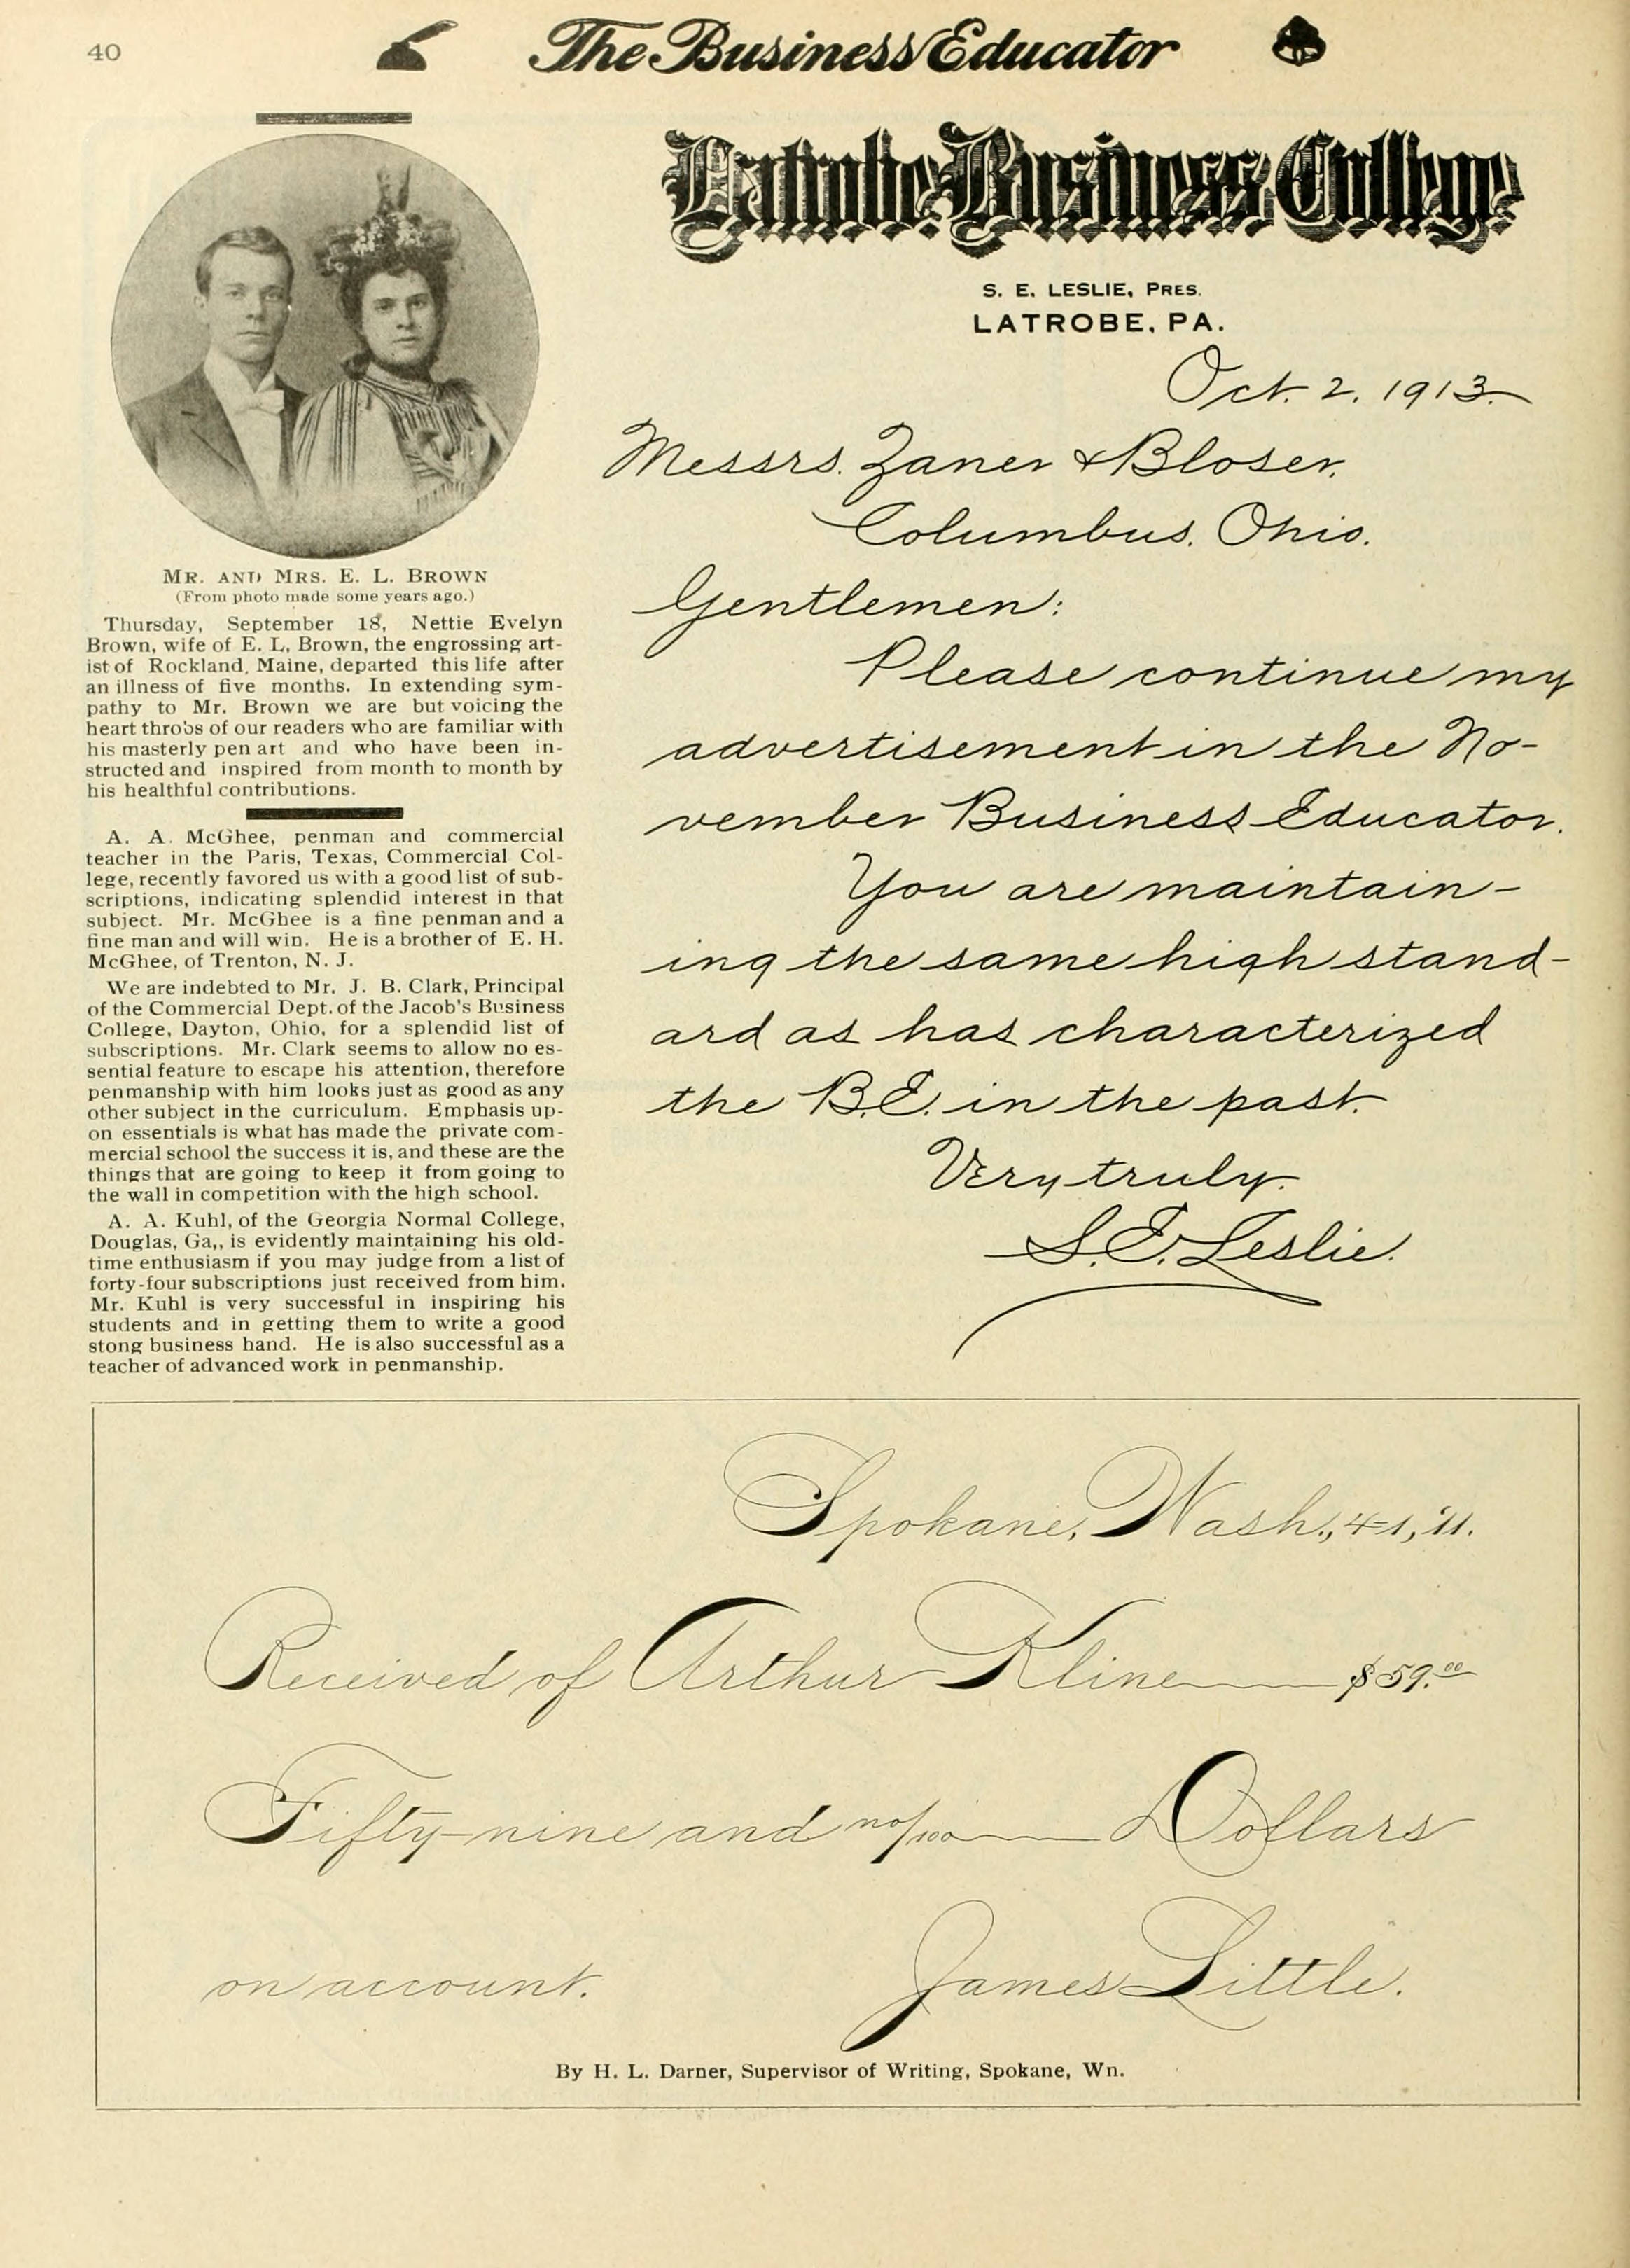 40
The Business Educator
MR. AND MRS. E. L. BROWN
(From photo made some years ago.)
Thursday, September 18, Nettie Evelyn
Brown, wife of E. L. Brown, the engrossing art-
ist of Rockland, Maine, departed this life after
an illness of five months. In extending sym-
pathy to Mr. Brown we are but voicing the
heart throbs of our readers who are familiar with
his masterly pen art and who have been in-
structed and inspired from month to month by
his healthful contributions.
A. A. McGhee, penman and commercial
teacher in the Paris, Texas, Commercial Col-
lege, recently favored us with a good list of sub-
scriptions, indicating splendid interest in that
subject. Mr. McGhee is a fine penman and a
fine man and will win. He is a brother of E. H.
McGhee, of Trenton, N. J.
We are indebted to Mr. J. B. Clark, Principal
of the Commercial Dept. of the Jacob's Business
College, Dayton, Ohio, for a splendid list of
subscriptions. Mr. Clark seems to allow no es-
sential feature to escape his attention, therefore
penmanship with him looks just as good as any
other subject in the curriculum. Emphasis up-
on essentials is what has made the private com-
mercial school the success it is, and these are the
things that are going to keep it from going to
the wall in competition with the high school.
A. A. Kuhl, of the Georgia Normal College,
Douglas, Ga,, is evidently maintaining his old-
time enthusiasm if you may judge from a list of
forty-four subscriptions just received from him.
Mr. Kuhl is very successful in inspiring his
students and in getting them to write a good
stong business hand. He is also successful as a
teacher of advanced work in penmanship.
Latrobe Business College
S. E. LESLIE, PRES.
LATROBE, PA.
Oct. 2, 1913.
Messrs. Zaner & Bloser,
Columbus, Ohio.
Gentlemen:
Please continue my
advertisement in the No-
vember Business Educator.
You are maintain-
ing the same high stand-
ard as has characterized
the B.E. in the past.
Very truly.
S. E. Leslie.
Spokane, Wash., 4-1, '11.
Received of Arthur Kline $59.00
Fifty-nine and no/100 Dollars
on account. James Little.
By H. L. Darner, Supervisor of Writing, Spokane, Wn.